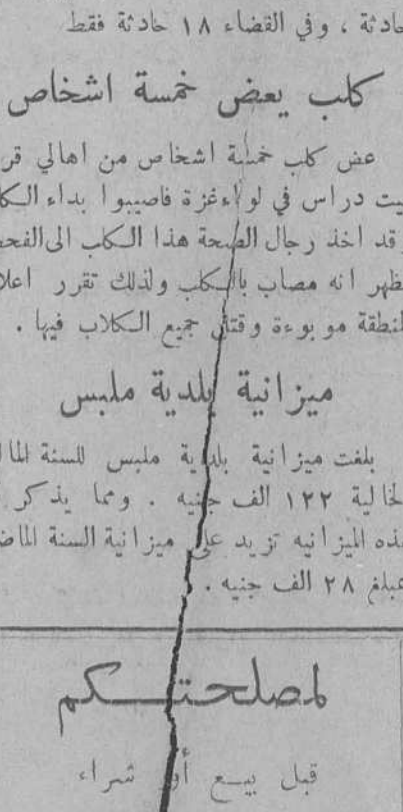 حادثة ، وفي القضاء ١٨ حادثة فقط
كلب يعض خمسة اشخاص
عض كلب خمسة اشخاص من اهالي قر
بيت دراس في لواء غزة فاصيبوا بداء الكا
وقد اخذ رجال الصحة هذا الكلب الى الفحص
فظهر انه مصاب بالكلب ولذلك تقرر اعلا
المنطقة موبوءة وقتل جميع الكلاب فيها .
ميزانية بلدية ملبس
بلغت ميزانية بلدية ملبس للسنة الما
الحالية ١٢٢ الف جنيه . ومما يذكر
هذه الميزانيه تزيد على ميزانية السنة الماض
بمبلغ ٢٨ الف جنيه .
لمصلحتكم
قبل بيع أو شراء